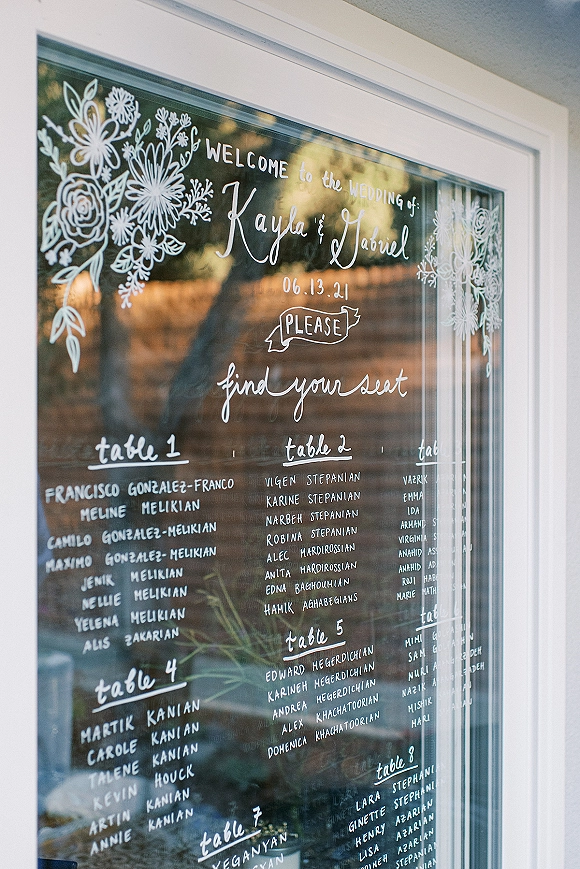 WELCOME to the WEDDING of:
Kayla & Gabriel
06.13.21
PLEASE
find your seat
table 1
FRANCISCO GONZALEZ-FRANCO
MELINE MELIKIAN
CAMILO GONZALEZ-MELIKIAN
MAXIMO GONZALEZ-MELIKIAN
JENIK MELIKIAN
NELLIE MELIKIAN
YELENA MELIKIAN
ALIS ZAKARIAN
table 2
VIGEN STEPANIAN
KARINE STEPANIAN
NARBEH STEPANIAN
ROBINA STEPANIAN
ALEC MARDIROSSIAN
ANITA MARDIROSSIAN
EDNA BAGHOUMIAN
HAMIK AGHABEGIANS
EMMA
IDA
VIRGINIA
ANAHID
ANAHID
ROJI
MARIE
table 4
MARTIK KANIAN
CAROLE KANIAN
TALENE KANIAN
KEVIN HOUCK
ARTIN KANIAN
ANNIE KANIAN
table 5
EDWARD HEGERDICHIAN
KARINEH HEGERDICHIAN
ANDREA HEGERDICHIAN
ALEX KHACHATOORIAN
DOMENICA KHACHATOORIAN
MIMI
SAM
NAZIK
HARI
table 7
YEGANYAN
table 8
LARA STEPHANI
GINETTE STEPHANI
HENRY AZARIAN
LISA AZARIAN
AZARIAN
STEPANIAN